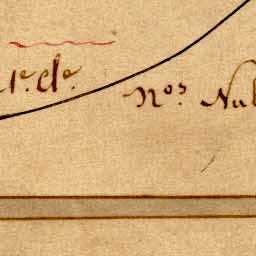 1.e Cl.e
N.os Nul